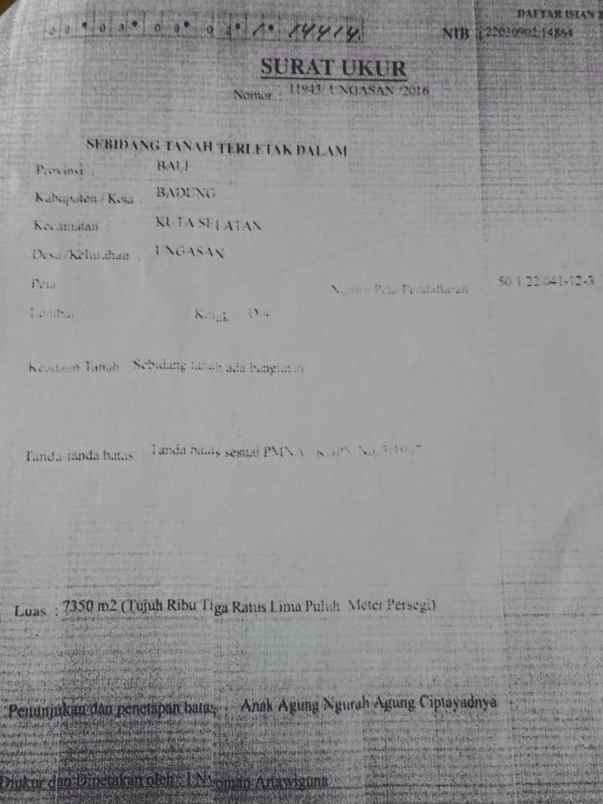 DAFTAR ISIAN
14414
NIB : 22030902.14864
SURAT UKUR
Nomor : 11943/ UNGASAN /2016
SEBIDANG TANAH TERLETAK DALAM
Provinsi : BALI
Kabupaten / Kota : BADUNG
Kecamatan : KUTA SELATAN
Desa/Kelurahan : UNGASAN
Peta
Nomor Peta Pendaftaran 50.1-22-041-12-3
Lembar Kotak
Keadaan Tanah Sebidang tanah ada bangunan
Tanda-tanda batas Tanda batas sesuai PMNA
Luas : 7350 m2 (Tujuh Ribu Tiga Ratus Lima Puluh Meter Persegi)
Penunjukan dan penetapan batas : Anak Agung Ngurah Agung Ciptayadnya
Diukur dan Dipetakan oleh : I Nyoman Artawiguna